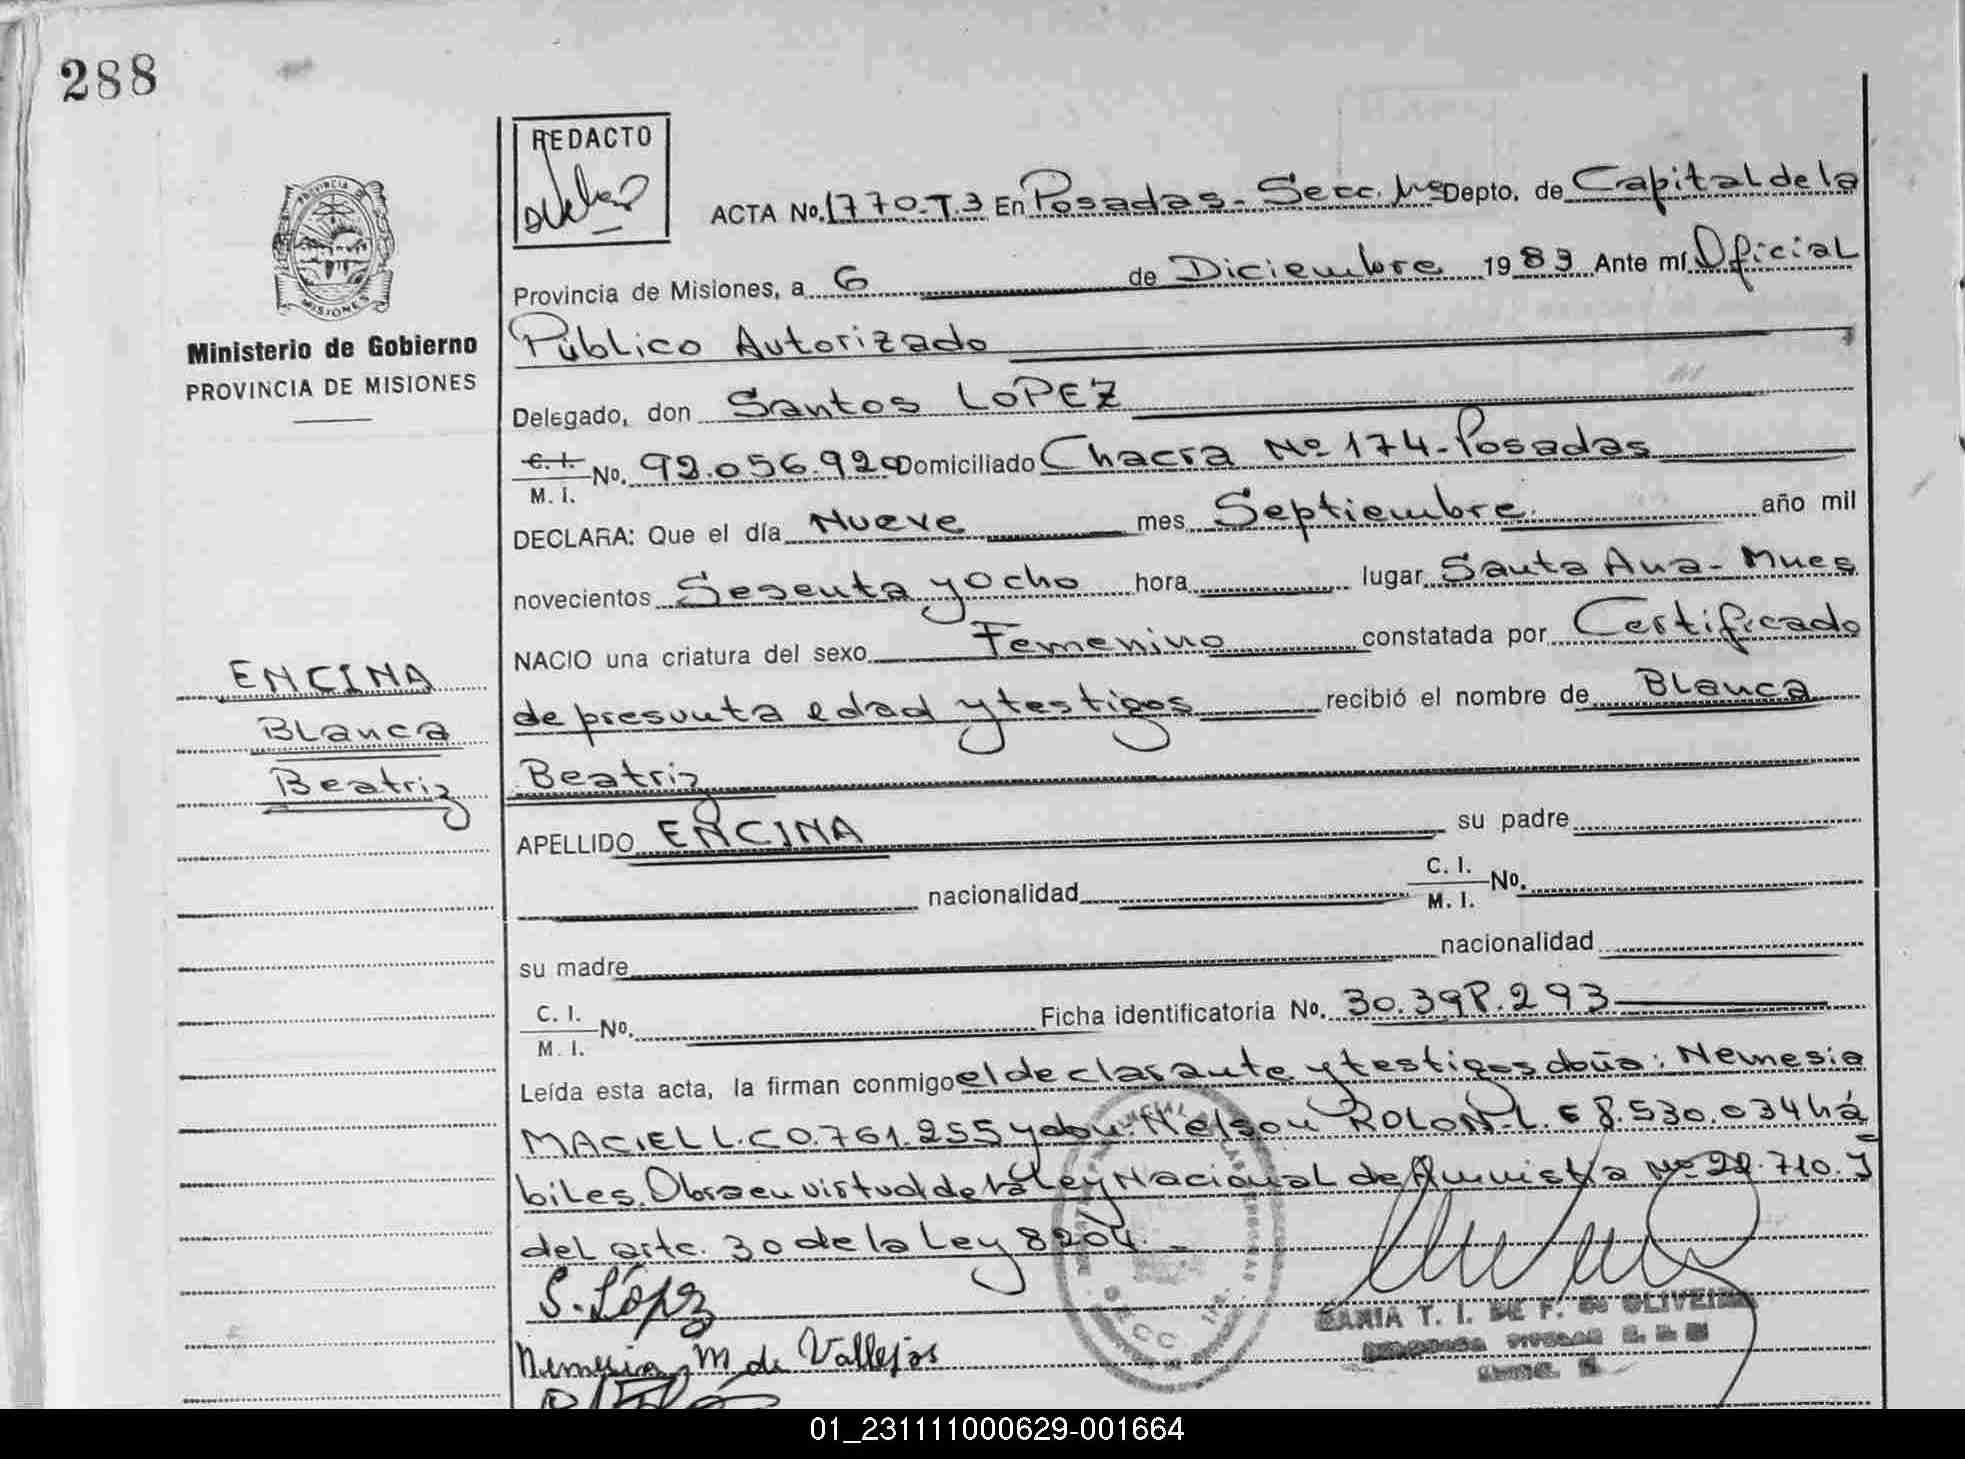 288
REDACTO
PROVINCIA DE
MISIONES
Ministerio de Gobierno
PROVINCIA DE MISIONES
ACTA No. 1770-T.3 En Posadas- Secc. 1ra Depto. de Capital de la
Provincia de Misiones, a 6 de Diciembre 1983 Ante mí Oficial
Público Autorizado
Delegado, don Santos LOPEZ
C. I.
M. I. No. 92.056.920 Domiciliado Chacra Nº 174-Posadas
DECLARA: Que el día Nueve mes Septiembre año mil
novecientos Sesenta y Ocho hora lugar Santa Ana- Mnes
NACIO una criatura del sexo Femenino constatada por Certificado
de presunta edad y testigos recibió el nombre de Blanca
Beatriz
ENCINA
Blanca
Beatriz
APELLIDO ENCINA su padre
nacionalidad C. I.
M. I. No.
su madre nacionalidad
C. I.
M. I. No. Ficha identificatoria No. 30.398.293
Leída esta acta, la firman conmigo el declarante y testigos doña: Nemesia
MACIEL L.C 0.761.255 y don: Nelson ROLON-L.E 8.530.034 há
biles. Obra en virtud de la Ley Nacional de Amnistia Nº 22.710. J
del artc. 30 de la Ley 8204.-
S. López
Nemesia M de Vallejos
SECC. 1ra.
T. I. DE F. DE OLIVEIRA
01_231111000629-001664